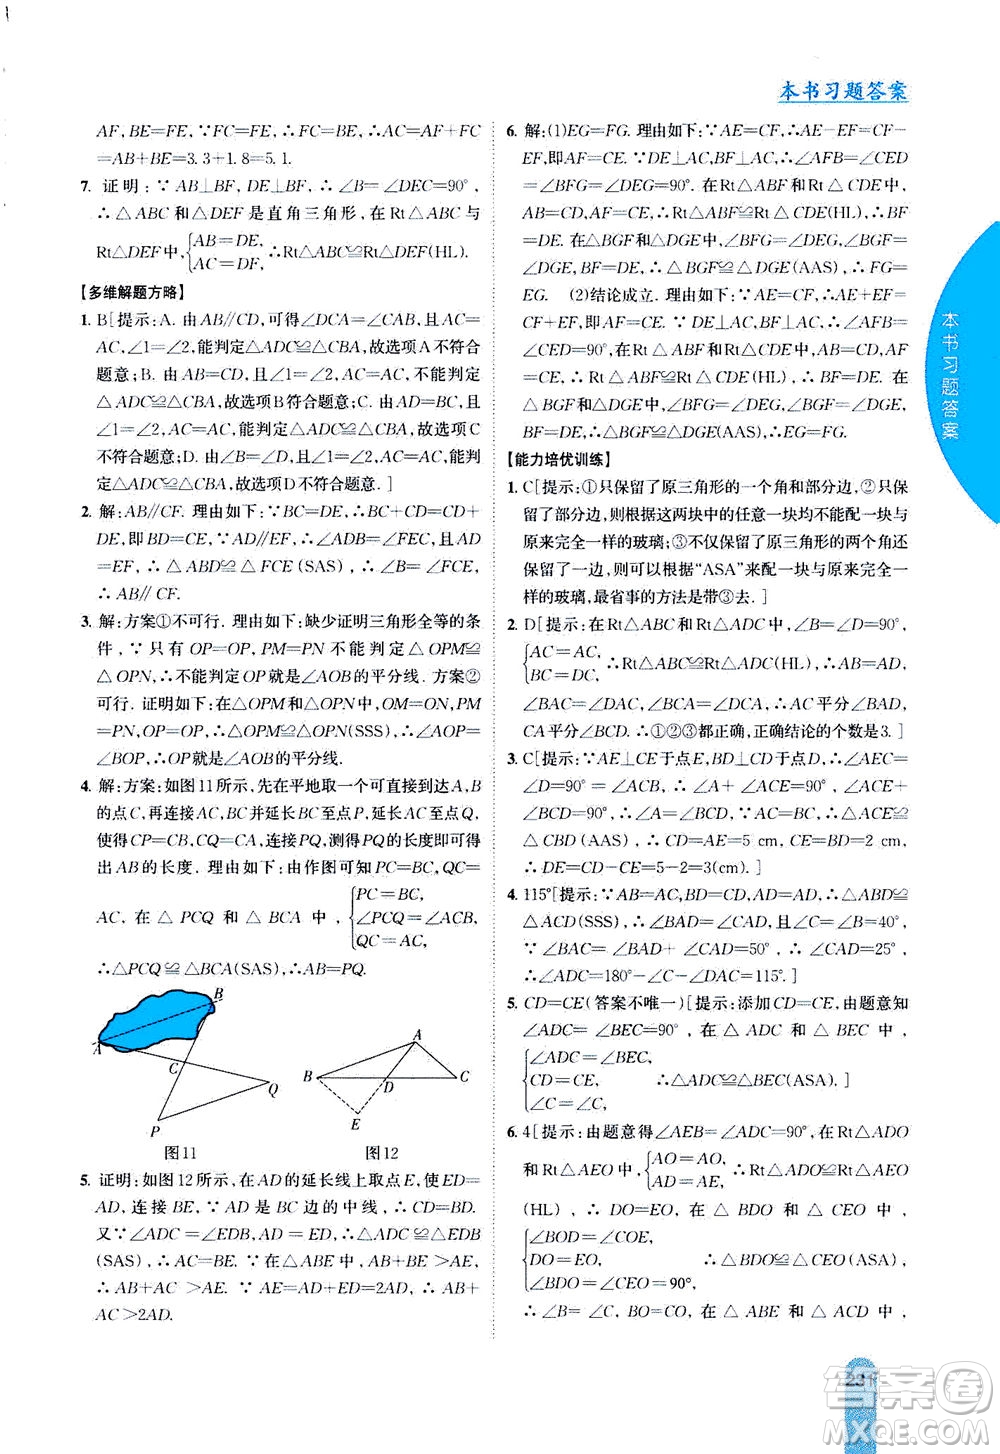 本书习题答案
AF,BE=FE,∵FC=FE,∴BC=AC=AF+FC
=AB+BE=3.3+1.8=5.1.
7. 证明:∵AB⊥BF,DE⊥BF,∴∠B=∠DEC=90°,
∴△ABC和△DEF是直角三角形,在Rt△ABC与
Rt△DEF中,{AB=DE, AC=DF, ∴Rt△ABC≌Rt△DEF(HL)
【多维解题方略】
1. B[提示:A.由AB∥CD,可得∠DCA=∠CAB,且AC=AC,
∠1=∠2,能判定△ADC≌△CBA,故选项A不符合
题意;B.由AB=CD,且∠1=∠2,AC=AC,不能判定
△ADC≌△CBA,故选项B符合题意;C.由AD=BC,
∠1=∠2,AC=AC,能判定△ADC≌△CBA,故选项C
不符合题意;D.由∠B=∠D,且∠1=∠2,AC=AC,能判
定△ADC≌△CBA,故选项D不符合题意.]
2. 解:AB∥CF.理由如下:∵BC=DE,∴BC+CD=CD
+DE,即BD=CE,∵∠ADB=∠FEC,AD
=EF,∴△ABD≌△FCE(SAS),∴∠B=∠FCE,
∴AB∥CF.
3. 解:方案①不可行.理由如下:缺少证明三角形全等的条
件,∵只有OP=OP,PM=PN不能判定△OPM≌
△OPN,∴不能判定OP就是∠AOB的平分线.方案②
可行.证明如下:在△OPM和△OPN中,OM=ON,PM
=PN,OP=OP,∴△OPM≌△OPN(SSS),∴∠AOP=
∠BOP,∴OP就是∠AOB的平分线.
4. 解:方案:如图11所示,先在平地取一个可直接到达A,B
的点C,再连接AC,BC并延长BC至点P,延长AC至点Q,
使得CP=CB,CQ=CA,连接PQ,测得PQ的长度即可测
出AB的长度.理由如下:由作图可知PC=BC,QC=
AC,在△PCQ和△BCA中,{PC=BC, ∠PCQ=∠ACB, QC=AC,
∴△PCQ≌△BCA(SAS),∴AB=PQ.
A B C P Q
图11
A B C D E
图12
5. 证明:如图12所示,在AD的延长线上取点E,使得ED=
AD,连接BE,∵AD是BC边上的中线,∴CD=BD.
又∵∠ADC=∠EDB,AD=ED,∴△ADC≌△EDB
(SAS),∴AC=BE.∵在△ABE中,AB+BE>AE,
∴AB+AC>AE.∵AE=AD+ED=2AD,∴AB+
AC>2AD.
6. 解:(1)EG=FG.理由如下:∵AE=CF,∴AE-EF=CF-
EF,即AF=CE.∵DE⊥AC,BF⊥AC,∴∠AFB=∠CED
=∠BFG=∠DEG=90°.在Rt△ABF和Rt△CDE中,
AB=CD,AF=CE,∴Rt△ABF≌Rt△CDE(HL),∴BF
=DE.在△BGF和△DGE中,∠BFG=∠DEG,∠BGF=
∠DGE,BF=DE,∴△BGF≌△DGE(AAS),∴FG=
EG.(2)结论成立.理由如下:∵AE=CF,∴AE+EF=
CF+EF,即AF=CE.∵DE⊥AC,BF⊥AC,∴∠AFB=
∠CED=90°,在Rt△ABF和Rt△CDE中,AB=CD,AF
=CE,∴Rt△ABF≌Rt△CDE(HL),∴BF=DE.在
△BGF和△DGE中,∠BFG=∠DEG,∠BGF=∠DGE,
BF=DE,∴△BGF≌△DGE(AAS),∴FG=EG.
【能力培优训练】
1. C[提示:①只保留了原三角形的一个角和部分边,②只保
留了部分边,所以根据这两块中的任意一块均不能配一块与
原来完全一样的玻璃;③不仅保留了原三角形的两个角还
保留了一边,则可以根据“ASA”来配一块与原来完全一样
的玻璃,最省事的方法是带③去.]
2. D[提示:在Rt△ABC和Rt△ADC中,∠B=∠D=90°,
{AC=AC, BC=DC, ∴Rt△ABC≌Rt△ADC(HL),∴AB=AD,
∠BAC=∠DAC,∠BCA=∠DCA,∴AC平分∠BAD,
CA平分∠BCD.∴①②③都正确,正确结论的个数是3.]
3. C[提示:∵AE⊥CE于点E,BD⊥CD于点D,∴∠AEC=
∠D=90°,
∴∠A=∠BCD,
CBD(AAS),∴CD=AE=5 cm,CE=BD=2 cm,
∴DE=CD-CE=5-2=3(cm).]
4. 115°[提示:∵AB=AC,BD=CD,AD=AD,∴△ABD≌
△ACD(SSS),∴∠BAD=∠CAD,∠B=∠C=40°,
∵∠BAC=∠BAD+∠CAD=50°,∴∠CAD=25°,
∴∠ADC=180°-∠C-∠CAD=115°.]
5. CD=CE(答案不唯一)[提示:添加CD=CE,由题意知
∠ADC=∠BEC=90°,在△ADC和△BEC中,
{∠ADC=∠BEC, CD=CE, ∠C=∠C, ∴△ADC≌△BEC(ASA).]
6. 4[提示:由题意得∠AEB=∠ADC=90°,在Rt△ADO
和Rt△AEO中,{AO=AO, AD=AE, ∴Rt△ADO≌Rt△AEO
(HL),∴DO=EO,在△BDO和△CEO中,
{∠BOD=∠COE, DO=EO, ∠BDO=∠CEO=90°, ∴△BDO≌△CEO(ASA).
∴∠B=∠C,BO=CO,在△ABE和△ACD中,
本书习题答案
231
答案圈
MXQE.COM